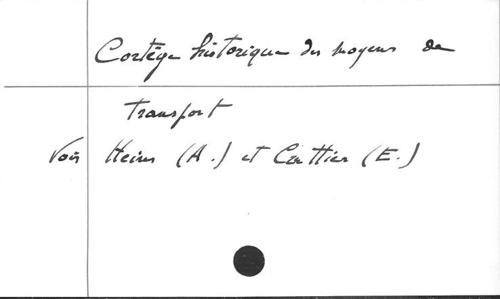 Cortège historique des moyens de
transport
Voir Heins (A.) et Cattier (E.)